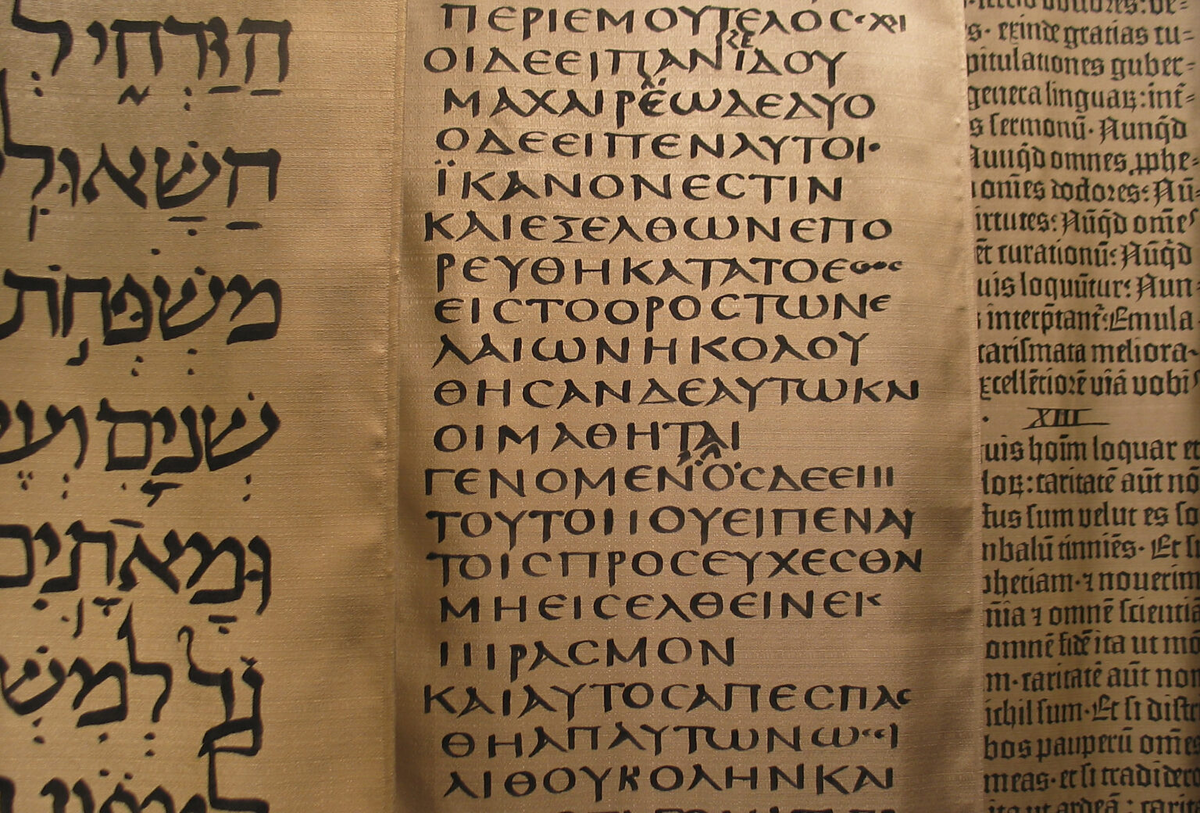 הַזַּרְחִ֑י
הַשָּׁאוּלִֽ
מִשְׁפְּחֹ֣ת
שְׁנַ֥יִם
וּמָאתָֽיִם
ΠΕΡΙΕΜΟΥΤΕΛΟϹ
ΟΙΔΕΕΙΠΑΝΪΔΟΥ
ΜΑΧΑΙΡΕΩΔΕΔΥΟ
ΟΔΕΕΙΠΕΝΑΥΤΟΙ·
ΪΚΑΝΟΝΕϹΤΙΝ
ΚΑΙΕΞΕΛΘΩΝΕΠΟ
ΡΕΥΘΗΚΑΤΑΤΟΕΘΟϹ
ΕΙϹΤΟΟΡΟϹΤΩΝΕ
ΛΑΙΩΝΗΚΟΛΟΥ
ΘΗϹΑΝΔΕΑΥΤΩΚΑΙ
ΟΙΜΑΘΗΤΑΙ
ΓΕΝΟΜΕΝΟϹΔΕΕΠΙ
ΤΟΥΤΟΠΟΥΕΙΠΕΝΑΥ
ΤΟΙϹΠΡΟϹΕΥΧΕϹΘΗ
ΜΗΕΙϹΕΛΘΕΙΝΕΙϹ
ΠΙΡΑϹΜΟΝ
ΚΑΙΑΥΤΟϹΑΠΕϹΠΑϹ
ΘΗΑΠΑΥΤΩΝΩϹΕΙ
ΛΙΘΟΥΒΟΛΗΝΚΑΙ
exinde gratias
guber-
genera linguaꝝ: int-
sermonū. Nunqͥd
Nunqͥd omnes ꝓphe-
om̄es doctores: Nū-
Nūqͥd om̄e
curationū: Nūqͥd
loquūtur: Nun-
interp̄tant᷑: Emula
meliora.
excellētiorē viā vobi
XIII
hoīm loquar et
caritatē aūt nō
sum velut es so
tinniēs. Et
⁊ noverim
⁊ omnē scienti
omnē fidē ita ut mō
caritatē aūt non
sum. Et si distr
pauperū om̄es
meas. et si tradidero
ita ut ardeā: carita